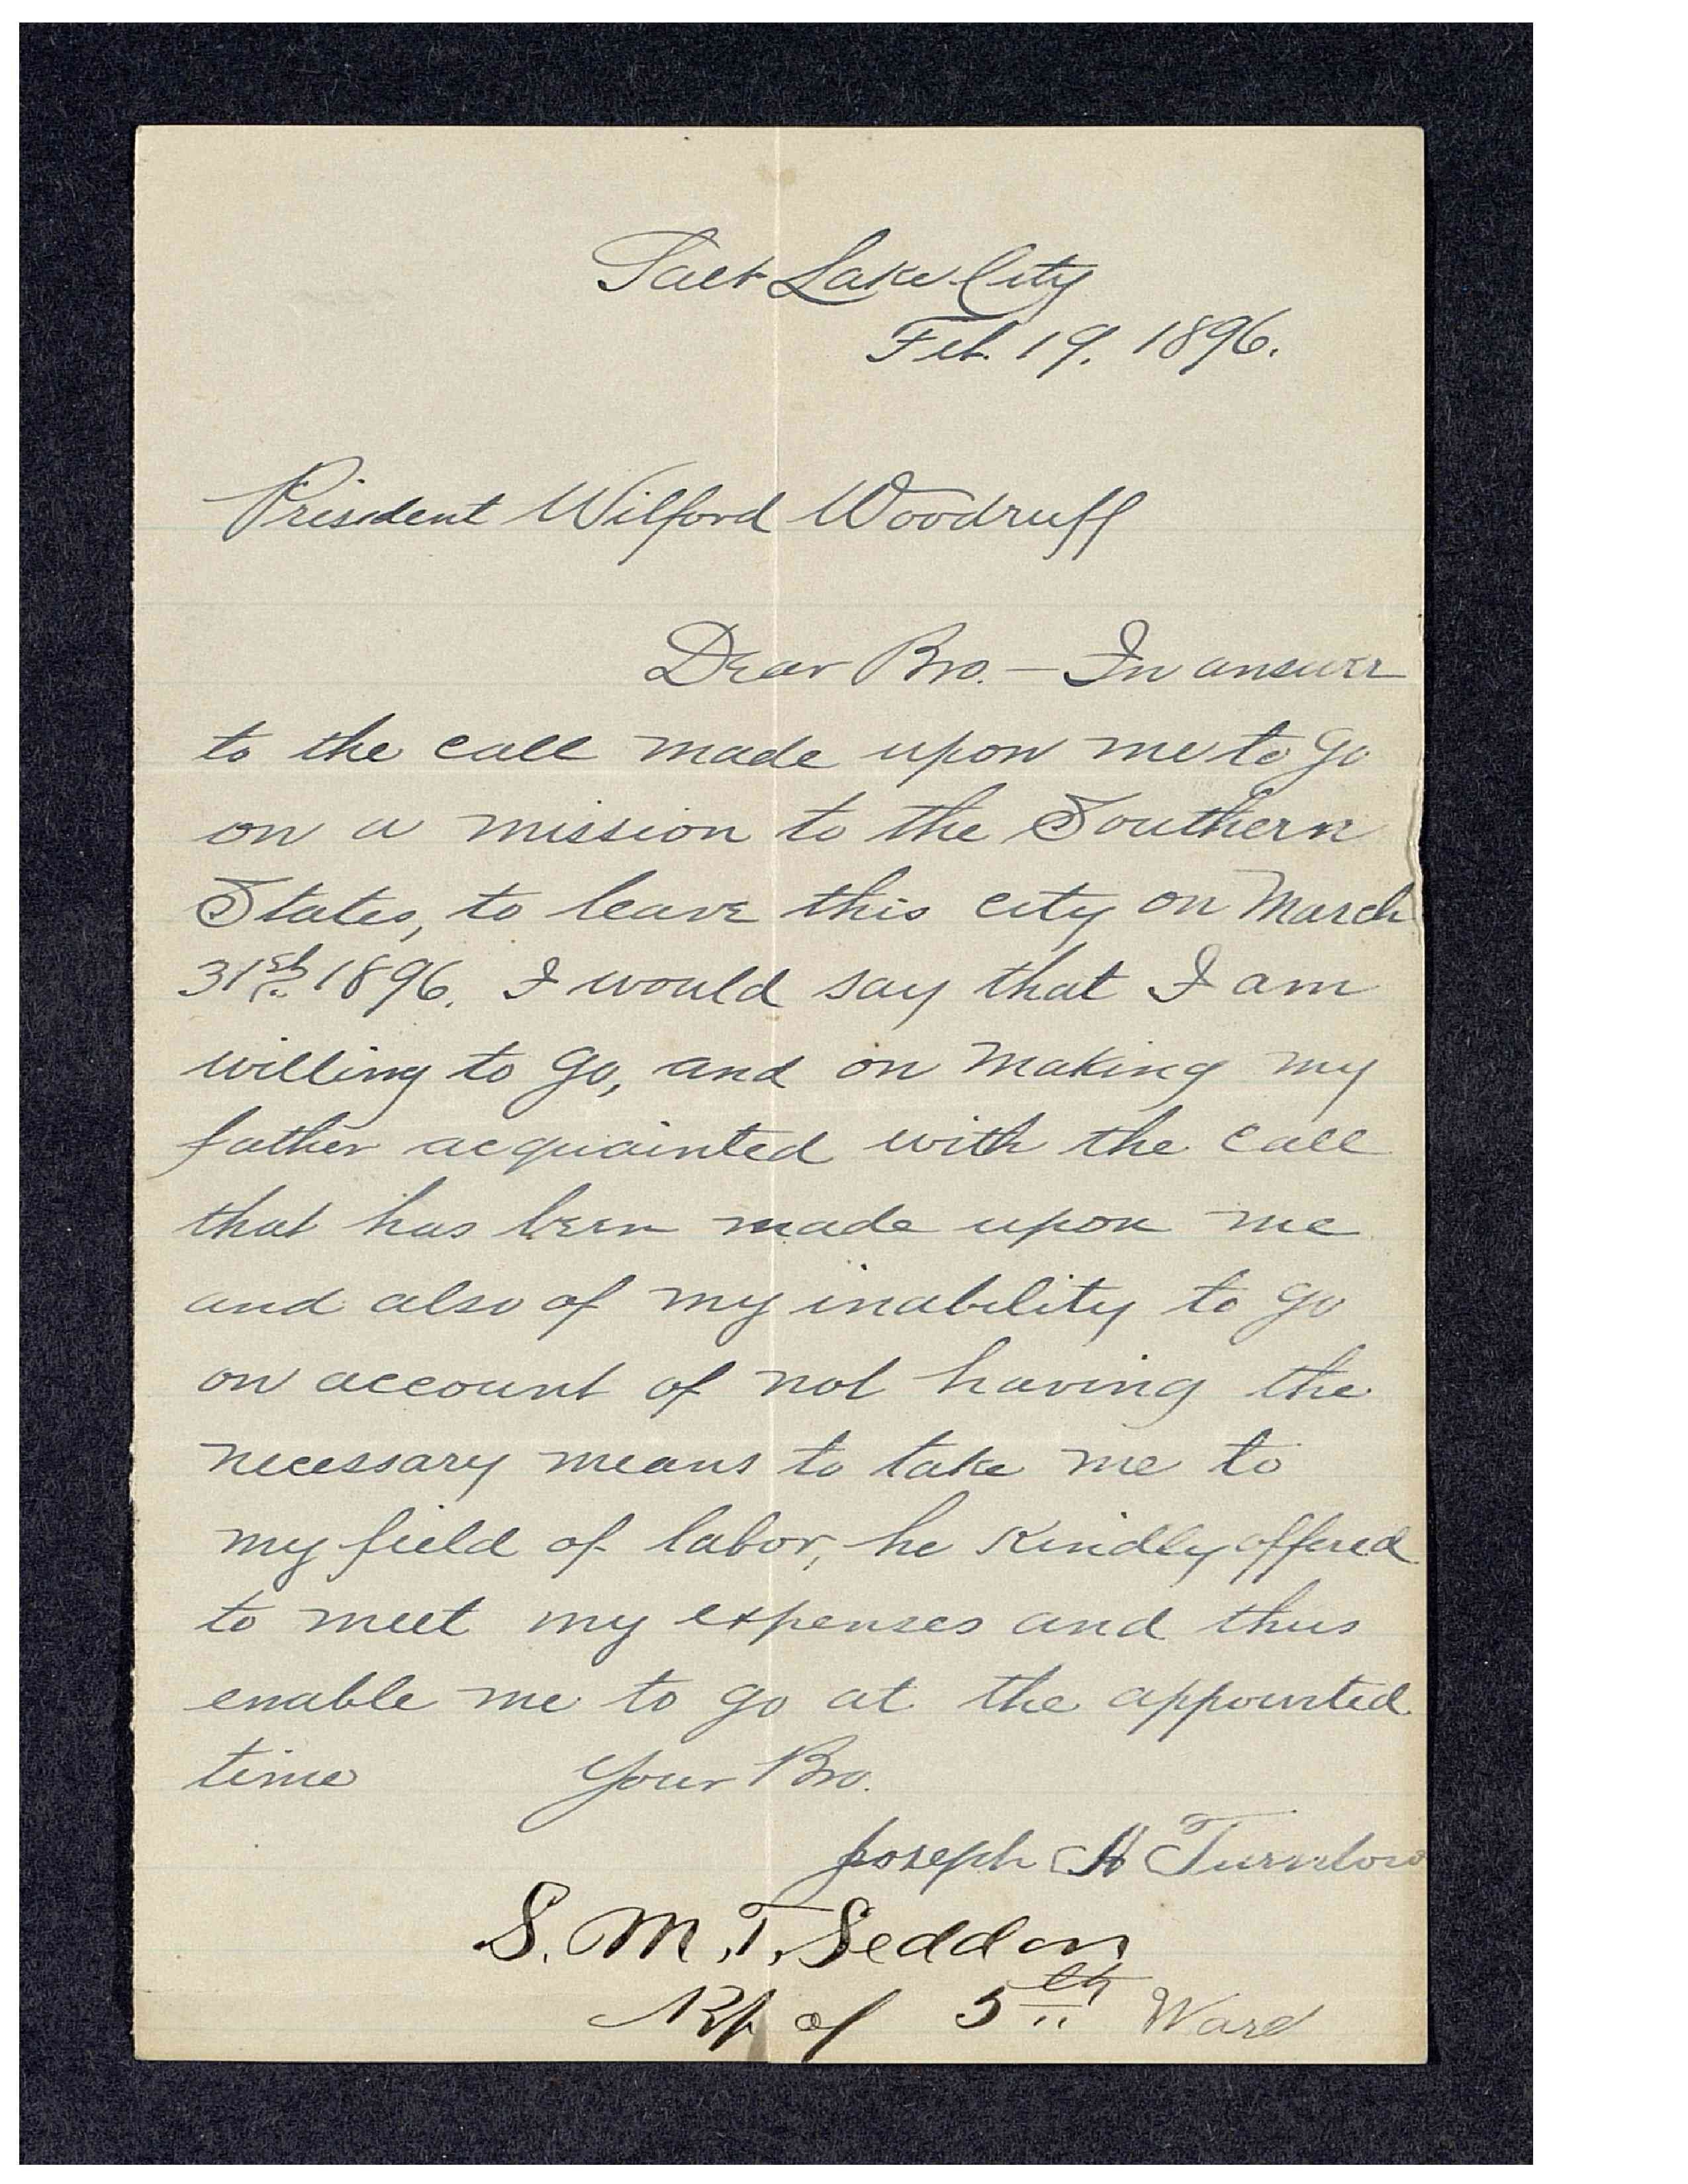 Salt Lake City
Feb. 19. 1896.
President Wilford Woodruff
Dear Bro. — In answer
to the call made upon me to go
on a mission to the Southern
States, to leave this city on March
31st 1896. I would say that I am
willing to go, and on making my
father acquainted with the call
that has been made upon me
and also of my inability to go
on account of not having the
necessary means to take me to
my field of labor, he kindly offered
to meet my expenses and thus
enable me to go at the appointed
time Your Bro.
Joseph H Turnbow
S. M. T. Seddon
Bp of 5th Ward